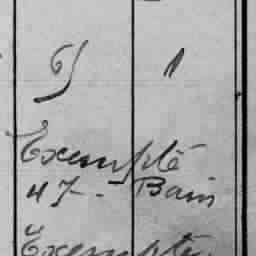 6) 1
Exempté
47-. Bain
Exempté.